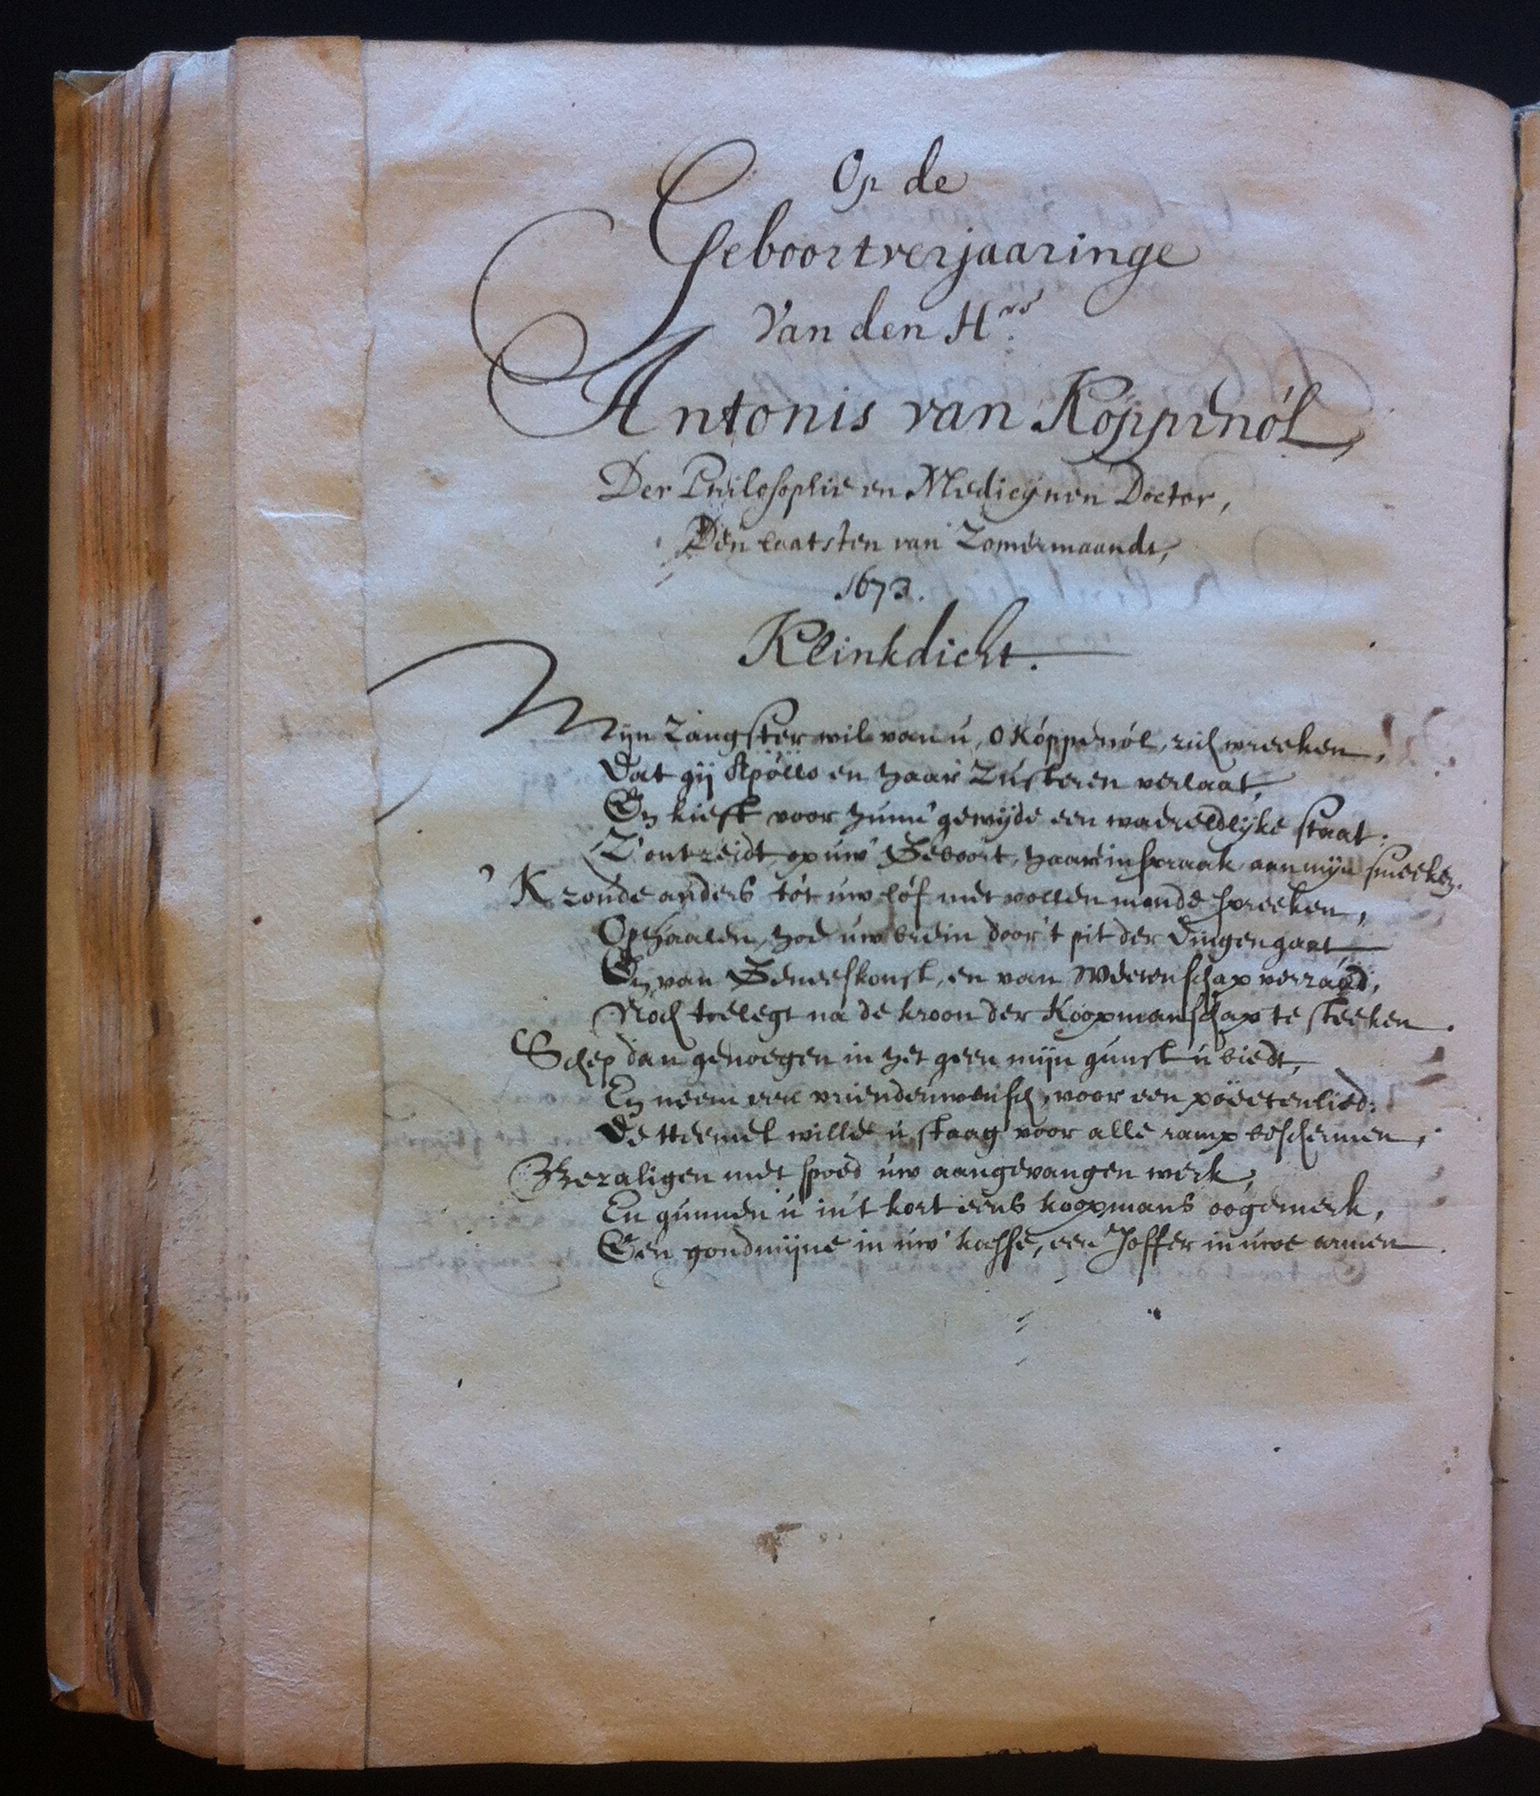 Op de
Geboortverjaaringe
Van den Hre
Antonis van Koppenól,
Der Philosophie en Medicynen Doctor,
Den laatsten van Zomermaandt,
1673.
Klinkdicht.
Mijn Zangster wil van ú, o Kóppenól, zich wreeken,
Dat gij Apóllo en haar Zusteren verlaat,
En kieft voor hunn' gewijde een waereldlijke staat:
Z'ontzeidt, op uw' Geboort, haare inspraak aan mijn smeeken.
'K zoude anders tót uw lóf met vollen monde spreeken,
Ophaalen, hoe uw brein door 't pit der dingen gaat,
En van Geneeskonst, en van Weetenschap verzaad,
Noch toelegt na de kroon der Koopmanschap te steeken.
Schep dan genoegen in het geen mijn gunst ú biedt,
En neem een vriendenwensch, voor een pöeetenlied:
De Heemel wille ú staag voor alle ramp beschermen,
Bezaligen met spoed uw aangevangen werk,
En gunnen ú in't kort eens koopmans oogemerk,
Een goudmijne in uw' kasse, een Joffer in uwe armen.